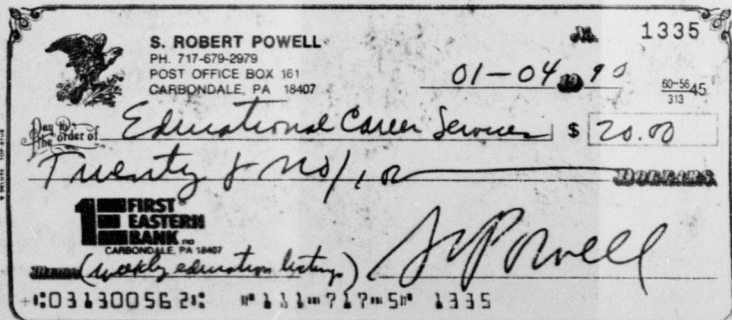 S. ROBERT POWELL
PH. 717-679-2979
POST OFFICE BOX 161
CARBONDALE, PA 18407
No. 1335
01-04 19 90
60-56 45
313
Pay to the order of Educational Career Services $ 20.00
Twenty & no/100 DOLLARS
1E FIRST EASTERN BANK
CARBONDALE, PA 18407
(weekly education listings) S R Powell
⑆031300562⑆ ⑈111⑉717⑉5⑈ 1335